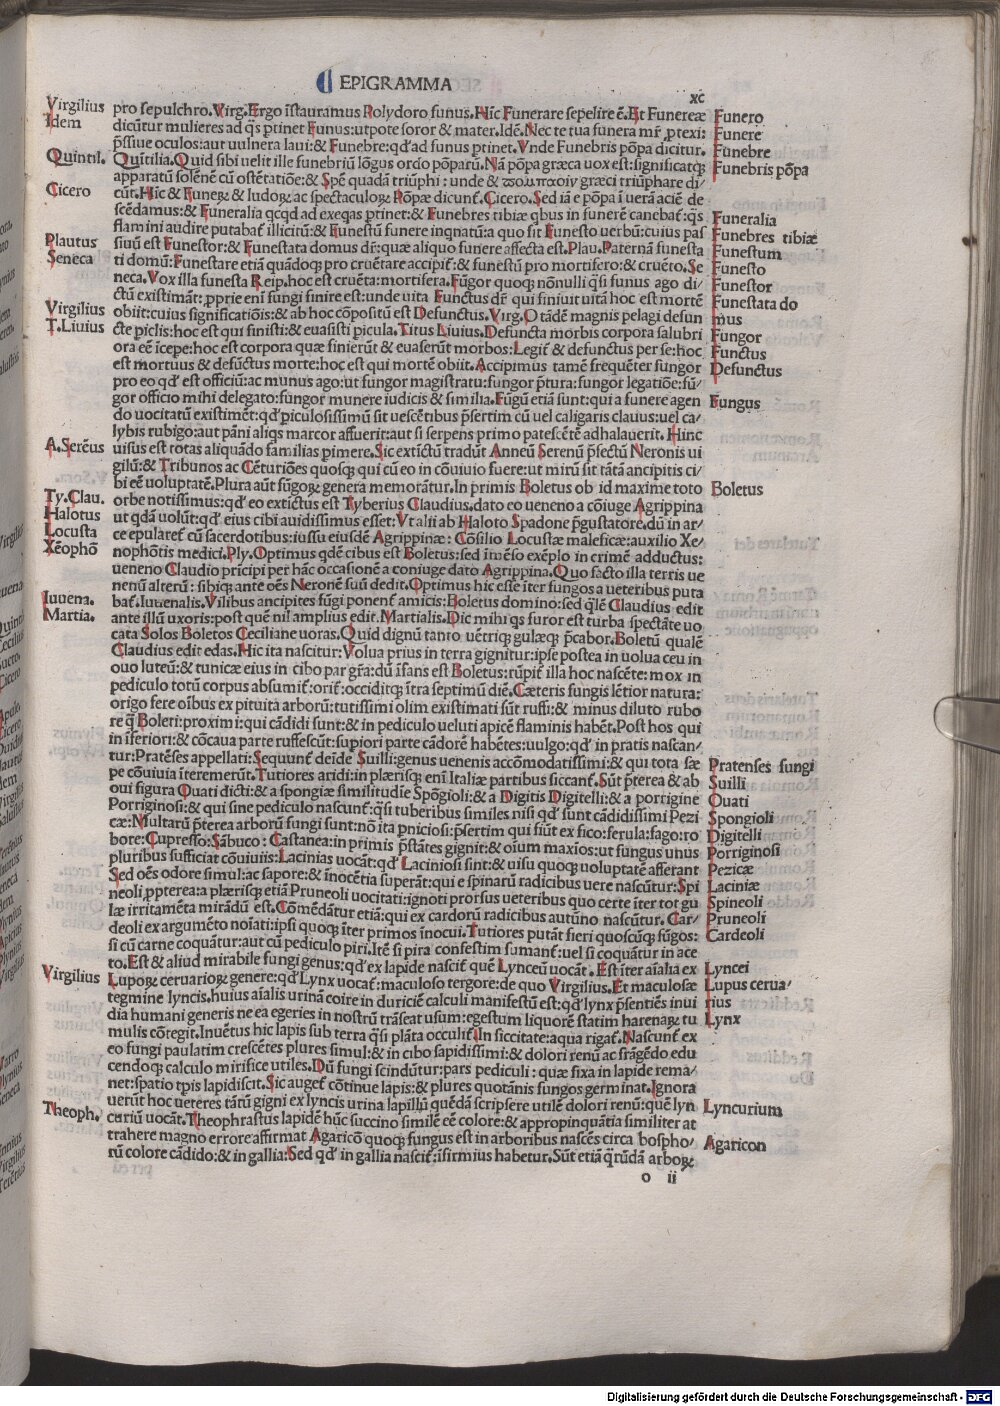 EPIGRAMMA
xc
Virgilius pro sepulchro.Virg.Ergo īstauramus Polydoro funus.Hīc Funerare sepelire ē.Et Funereæ Funero
Idem dicūtur mulieres ad q̄s ptinet Funus:utpote soror & mater.Idē.Nec te tua funera mr̄ ,ptexi: Funere
p̄ssiue oculos:aut uulnera laui:& Funebre:qd' ad funus ptinet.Vnde Funebris pōpa dicitur. Funebre
Quintil. Quītilia.Quid sibi uelit ille funebriū lōgus ordo pōparū.Nā pōpa græca uox est:significatq; Funebris pōpa
apparatū solēnē cū ostētatiōe:& Spē quadā triūphi : unde & græci triūphare di/
Cicero cūt.Hīc & Funeꝝ & ludoꝝ ac spectaculoꝝ Pōpæ dicunt̄.Cicero.Sed iā e pōpa ī uerā aciē de
scēdamus:& Funeralia qcqd ad exeqas ptinet:& Funebres tibiæ qbus in funerē canebat̄:q̄s Funeralia
flamini audire putabat̄ illicitū:& Funestū funere ingnatū:a quo sit Funesto uerbū:cuius pas Funebres tibiæ
Plautus siuū est Funestor:& Funestata domus dr̄:quæ aliquo funere affecta est.Plau.Paternā funesta Funestum
Seneca ti domū:Funestare etiā quādoq; pro cruētare accipit̄:& funestū pro mortifero:& cruēto.Se Funesto
neca.Vox illa funesta Reip.hoc est cruēta:mortifera.Fūgor quoq; nōnulli q̄si funus ago di/ Funestor
ctū existimāt:,pprie eni fungi finire est:unde uita Functus dr̄ qui finiuit uitā hoc est mortē Funestata do
Virgilius obiit:cuius significatiōis:& ab hoc cōpositū est Defunctus.Virg.O tādē magnis pelagi defun mus
T.Liuius cte piclis:hoc est qui finisti:& euasisti picula.Titus Liuius.Defuncta morbis corpora salubri Fungor
ora eē īcepe:hoc est corpora quæ finierūt & euaserūt morbos:Legit̄ & defunctus per se:hoc Functus
est mortuus & defūctus morte:hoc est qui mortē obiit.Accipimus tamē frequēter fungor Defunctus
pro eo qd' est officiū:ac munus ago:ut fungor magistratu:fungor p̄tura:fungor legatiōe:fū/
gor officio mihi delegato:fungor munere iudicis & similia.Fūgū etiā sunt:qui a funere agen Fungus
do uocitatū existimēt:qd' piculosissimū sit uescētibus p̄sertim cū uel caligaris clauius:uel ca/
lybis rubigo:aut pāni aliqs marcor affuerit:aut si serpens primo patescētē adhalauerit.Hinc
A.Serēus uisus est rotas aliquādo familias pimere.Sic extictū tradūt Anneū Serenū p̄fectū Neronis ui
gilū:& Tribunos ac Cēturiōes quosq; qui cū eo in cōuiuio fuere:ut mirū sit tātā ancipitis ci/
bi eē uoluptatē.Plura aūt fūgoꝝ genera memorātur.In primis Boletus ob id maxime toto Boletus
Ty.Clau. orbe notissimus:qd' eo extictus est Tyberius Claudius.dato eo ueneno a cōiuge Agrippina
Halotus ut qdā uolūt:qd' eius cibi auidissimus esset:Vt alii ab Haloto Spadone p̄gustatore.dū in ar/
Locusta ce epularet̄ cū sacerdotibus:iussu eiusdē Agrippinæ: Cōsilio Locustæ maleficæ:auxilio Xe/
Xēophō nophōtis medici.Ply.Optimus qdē cibus est Boletus:sed īmēso exēplo in crimē adductus:
ueneno Claudio pricipi per hāc occasionē a coniuge dato Agrippina.Quo facto illa terris ue
nenū alterū : sibiq;ante oēs Neronē suū dedit.Optimus hic esse īter fungos a ueteribus puta
Iuuena. bat̄.Iuuenalis.Vilibus ancipites fūgi ponent̄ amicis:Boletus domino:sed qlē Claudius edit
Martia. ante illū uxoris:post quē nil amplius edit.Martialis.Dic mihi qs furor est turba spectāte uo
cata Solos Boletos Ceciliane uoras.Quid dignū tanto uētriq; gulæq; p̄cabor.Boletū qualē
Claudius edit edas.Hic ita nascitur:Volua prius in terra gignitur:ipse postea in uolua ceu in
ouo luteū:& tunicæ eius in cibo par gr̄a:dū īfans est Boletus:rūpit̄ illa hoc nascēte:mox in
pediculo totū corpus absumit̄:orit̄:occiditq; ītra septimū diē.Cæteris fungis lētior natura:
origo fere oībus ex pituita arborū:tutissimi olim existimati sūt ruffi:& minus diluto rubo
re q̄ Boleti:proximi:qui cādidi sunt:& in pediculo ueluti apicē flaminis habēt.Post hos qui
in īferiori:& cōcaua parte ruffescūt:supiori parte cādorē habētes:uulgo:qd' in pratis nascan/
tur:Pratēses appellati:Sequunt̄ deīde Suilli:genus uenenis accōmodatissimi:& qui tota sæ Pratenses fungi
pe cōuiuia īteremerūt.Tutiores aridi:in plærisq; eni Italiæ partibus siccant̄.Sūt p̄terea & ab Suilli
oui figura Ouati dicti:& a spongiæ similitudie Spōgioli:& a Digitis Digitelli:& a porrigine Ouati
Porriginosi:& qui sine pediculo nascunt̄:q̄si tuberibus similes nisi qd' sunt cādidissimi Pezi Spongioli
cæ:Multarū p̄terea arborū fungi sunt:nō ita pniciosi:p̄sertim qui fiūt ex fico:ferula:fago:ro Digitelli
bore:Cupresso:Sābuco: Castanea:in primis p̄stātes gignit:& oium maxios:ut fungus unus Porriginosi
pluribus sufficiat cōuiuiis:Lacinias uocāt:qd' Laciniosi sint:& uisu quoq; uoluptatē afferant Pezicæ
Sed oēs odore simul:ac sapore:& īnocētia superāt:qui e spinarū radicibus uere nascūtur:Spi Laciniæ
neoli,ppterea:a plærisq; etiā Pruneoli uocitati:ignoti prorsus ueteribus quo certe īter tot gu Spineoli
læ irritamēta mirādū est.Cōmēdātur etiā:qui ex cardorū radicibus autūno nascūtur.Car/ Pruneoli
deoli ex argumēto noīati:ipsi quoq; īter primos īnocui.Tutiores putāt fieri quoscūq; fūgos: Cardeoli
si cū carne coquātur:aut cū pediculo piri.Itē si pira confestim sumant̄:uel si coquātur in ace
to.Est & aliud mirabile fungi genus:qd' ex lapide nascit̄ quē Lynceū uocāt.Est īter aīalia ex Lyncei
Virgilius Lupoꝝ ceruarioꝝ genere:qd' Lynx uocat̄:maculoso tergore:de quo Virgilius.Et maculosæ Lupus cerua/
tegmine lyncis.huius aīalis urinā coire in duriciē calculi manifestū est:qd' lynx p̄sentiēs inui rius
dia humani generis ne ea egeries in nostrū trāseat usum:egestum liquorē statim harenaꝝ tu Lynx
mulis cōtegit.Inuētus hic lapis sub terra q̄si plāta occulit̄.In siccitate:aqua rigat̄.Nascunt̄ ex
eo fungi paulatim crescētes plures simul:& in cibo sapidissimi:& dolori renū ac frāgēdo edu
cendoq; calculo mirifice utiles.Dū fungi scindūtur:pars pediculi : quæ fixa in lapide rema/
net:spatio tpis lapidiscit.Sic auget̄ cōtinue lapis:& plures quotānis fungos germinat.Ignora
uerūt hoc ueteres tātū gigni ex lyncis urina lapillū quēdā scripsere utilē dolori renū:quē lyn Lyncurium
Theoph. curiū uocāt.Theophrastus lapidē hūc succino similē eē colore:& appropinquātia similiter at
trahere magno errore affirmat Agaricō quoq; fungus est in arboribus nascēs circa bospho/ Agaricon
rū colore cādido:& in gallia:Sed qd' in gallia nascit̄:īfirmius habetur.Sūt etiā q̄rūdā arboꝝ
o ii
Digitalisierung gefördert durch die Deutsche Forschungsgemeinschaft - DFG